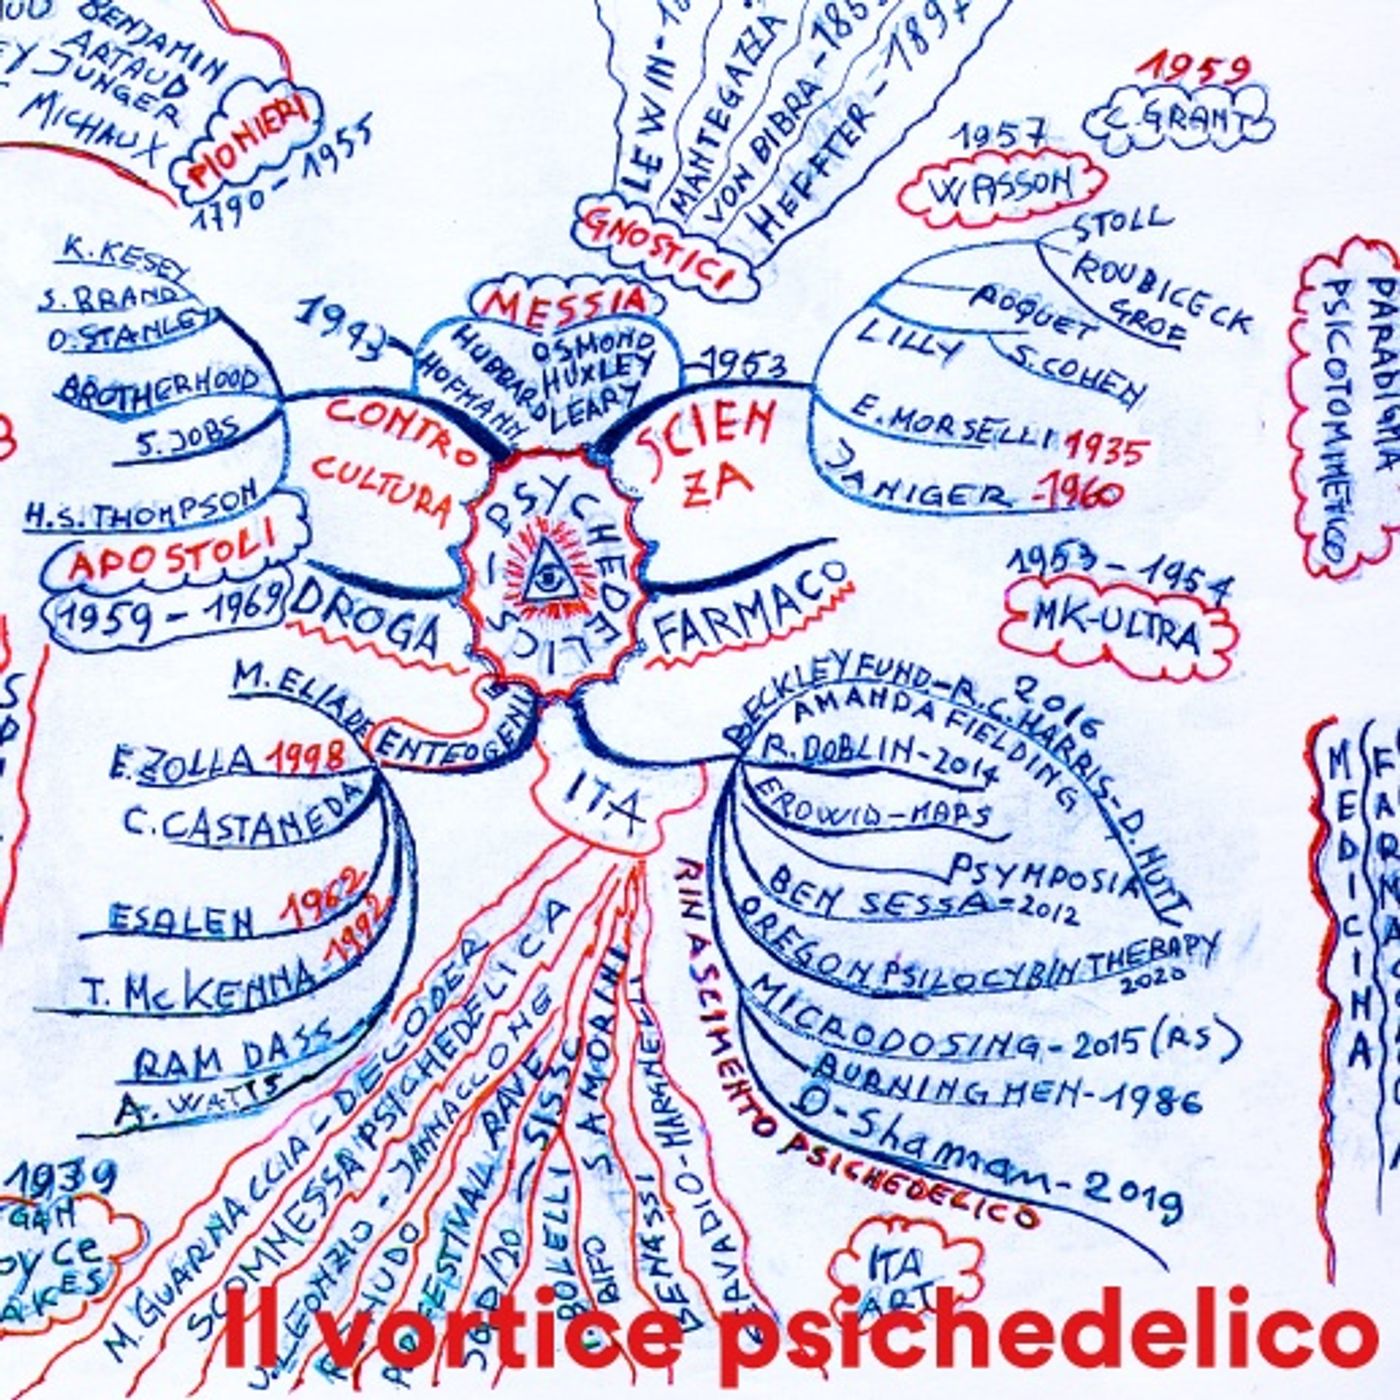 BENJAMIN
ARTAUD
JUNGER
MICHAUX
PIONIERI
1790-1955
LEWIN-18
MANTEGAZZA
VON BIBRA-185
HEFFTER-1897
GNOSTICI
1959
C.GRANT
1957
WASSON
STOLL
ROUBICECK
GROF
ROQUET
LILLY
S.COHEN
E.MORSELLI 1935
JANIGER -1960
K.KESEY
S.BRAND
O.STANLEY
BROTHERHOOD
S.JOBS
H.S.THOMPSON
APOSTOLI
1959-1969
1943
MESSIA
HUBBARD
HOFMANN
OSMOND
HUXLEY
LEARY
1953
CONTRO
CULTURA
SCIEN
ZA
PSYCHEDELICS
DROGA
FARMACO
PARADIGMA
PSICOTOMIMETICO
1953-1954
MK-ULTRA
M.ELIADE
ENTEOGENI
E.ZOLLA 1998
C.CASTANEDA
ESALEN 1962
T.McKENNA-1992
RAM DASS
A.WATTS
ITA
BECKLEY FUND-R.C.HARRIS-D.NUTT
2016
AMANDA FIELDING
R.DOBLIN-2014
EROWID-MAPS
PSYMPOSIA
BEN SESSA-2012
OREGON PSILOCYBIN THERAPY
2020
MICRODOSING-2015(RS)
BURNING MEN-1986
O-Shaman-2019
RINASCIMENTO PSICHEDELICO
MEDICINA
1939
M.GUARNACCIA-DECODER
SCOMMESSA PSICHEDELICA
J.LEONZIO-JANNACCONE
HUDO
FESTIVAL RAVE
SISSC
SAMORINI
BOLELLI
BIFO
BENASSI
ITA
ART
Il vortice psichedelico